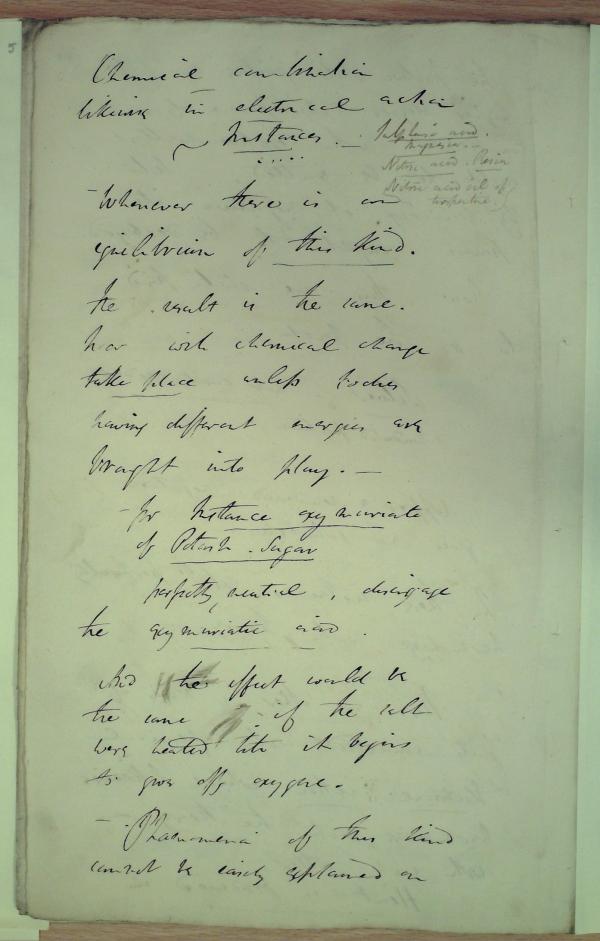 5
Chemical combination
likewise in electrical action
~ Instances. — Sulphuric acid.
Magnesia. -
Nitric acid - Resin
Nitric acid oil of
turpentine.
- Whenever there is an
equilibrium of this kind.
the result is the same.
nor will chemical change
take place unless bodies
having different energies are
brought into play. —
- for Instance oxymuriate
of Potash - Sugar
perfectly neutral, disengage
the oxymuriatic acid.
And the effect would be
the same if the salt
were heated till it begins
to give off oxygene.
- Phaenomena of this kind
cannot be easily explained on